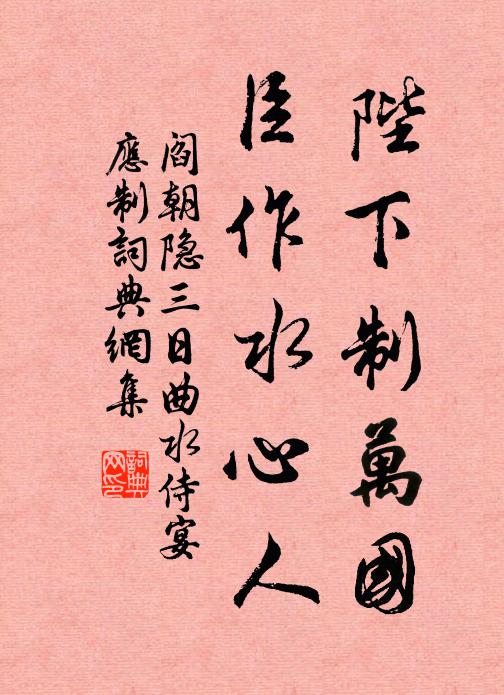 陛下制萬國
臣作水心人
阎朝隐三日曲水侍宴
應制詞典網集
詞典
网印